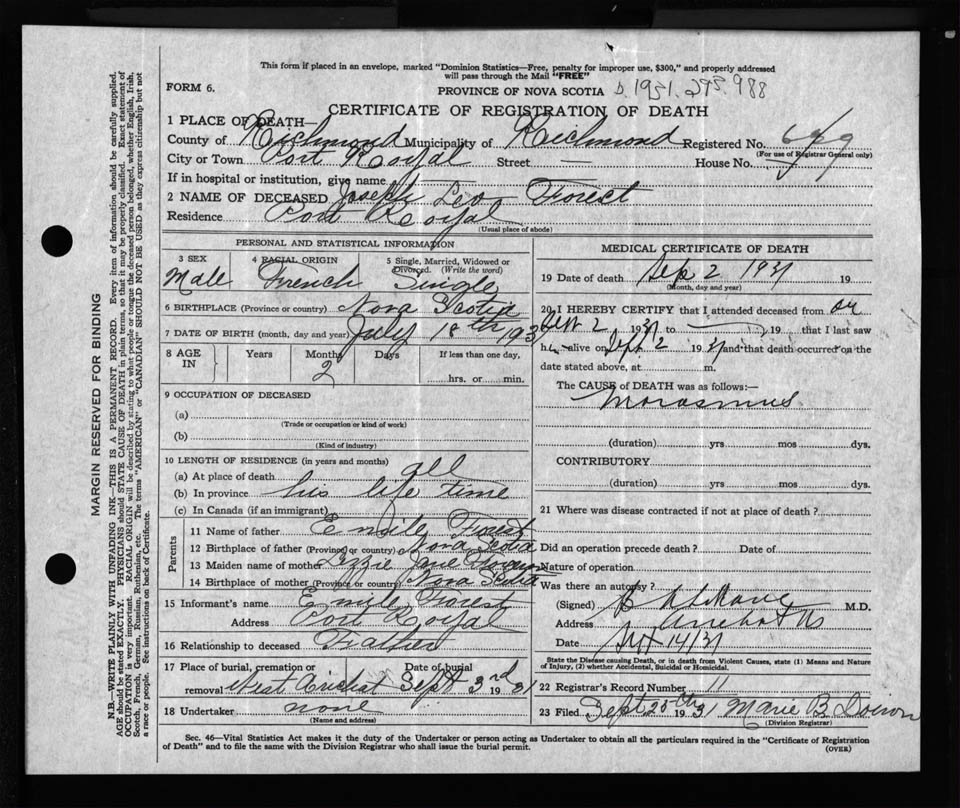 This form if placed in an envelope, marked "Dominion Statistics—Free, penalty for improper use, $300," and properly addressed
will pass through the Mail "FREE"
FORM 6.
PROVINCE OF NOVA SCOTIA
CERTIFICATE OF REGISTRATION OF DEATH
1 PLACE OF DEATH—
County of Richmond Municipality of Richmond Registered No.
(For use of Registrar General only)
City or Town Port Royal Street House No.
If in hospital or institution, give name
2 NAME OF DECEASED Joseph Leo Forest
Residence Port Royal
(Usual place of abode)
PERSONAL AND STATISTICAL INFORMATION
3 SEX 4 RACIAL ORIGIN 5 Single, Married, Widowed or
Divorced. (Write the word)
Male French Single
6 BIRTHPLACE (Province or country) Nova Scotia
7 DATE OF BIRTH (month, day and year) July 18th 1931
8 AGE IN Years Months Days If less than one day,
2
hrs. or min.
9 OCCUPATION OF DECEASED
(a)
(Trade or occupation or kind of work)
(b)
(Kind of industry)
10 LENGTH OF RESIDENCE (in years and months)
(a) At place of death all
(b) In province his life time
(c) In Canada (if an immigrant)
Parents
11 Name of father Emile Forest
12 Birthplace of father (Province or country) Nova Scotia
13 Maiden name of mother Lizzie Jane
14 Birthplace of mother (Province or country) Nova Scotia
15 Informant's name Emile Forest
Address Port Royal
16 Relationship to deceased Father
17 Place of burial, cremation or Date of burial
removal West Arichat Sept 3rd 1931
18 Undertaker none
(Name and address)
MEDICAL CERTIFICATE OF DEATH
19 Date of death Sep 2 1931 19
(Month, day and year)
20 I HEREBY CERTIFY that I attended deceased from on
Sept 2 1931 to 19 that I last saw
h alive on Sept 2 1931 and that death occurred on the
date stated above, at m.
The CAUSE of DEATH was as follows:—
Marasmus
(duration) yrs mos dys.
CONTRIBUTORY
(duration) yrs mos dys.
21 Where was disease contracted if not at place of death?
Did an operation precede death? Date of
Nature of operation
Was there an autopsy?
(Signed) M.D.
Address Arichat NS
Date Sept 14/31
State the Disease causing Death, or in death from Violent Causes, state (1) Means and Nature
of Injury, (2) whether Accidental, Suicidal or Homicidal.
22 Registrar's Record Number 11
23 Filed Sept 25th 1931 Marie B Doiron
(Division Registrar)
Sec. 46—Vital Statistics Act makes it the duty of the Undertaker or person acting as Undertaker to obtain all the particulars required in the "Certificate of Registration
of Death" and to file the same with the Division Registrar who shall issue the burial permit.
(OVER)
MARGIN RESERVED FOR BINDING
N.B.—WRITE PLAINLY WITH UNFADING INK—THIS IS A PERMANENT RECORD. Every item of information should be carefully supplied.
AGE should be stated EXACTLY. PHYSICIANS should STATE CAUSE OF DEATH in plain terms, so that it may be properly classified. Exact statement of
OCCUPATION is very important. RACIAL ORIGIN will be described by stating to what people or tongue the deceased person belonged, whether English, Irish,
Scotch, French, German, Russian, Ruthenian, etc. The terms "AMERICAN" or "CANADIAN" SHOULD NOT BE USED as they express citizenship but not
a race or people. See instructions on back of Certificate.